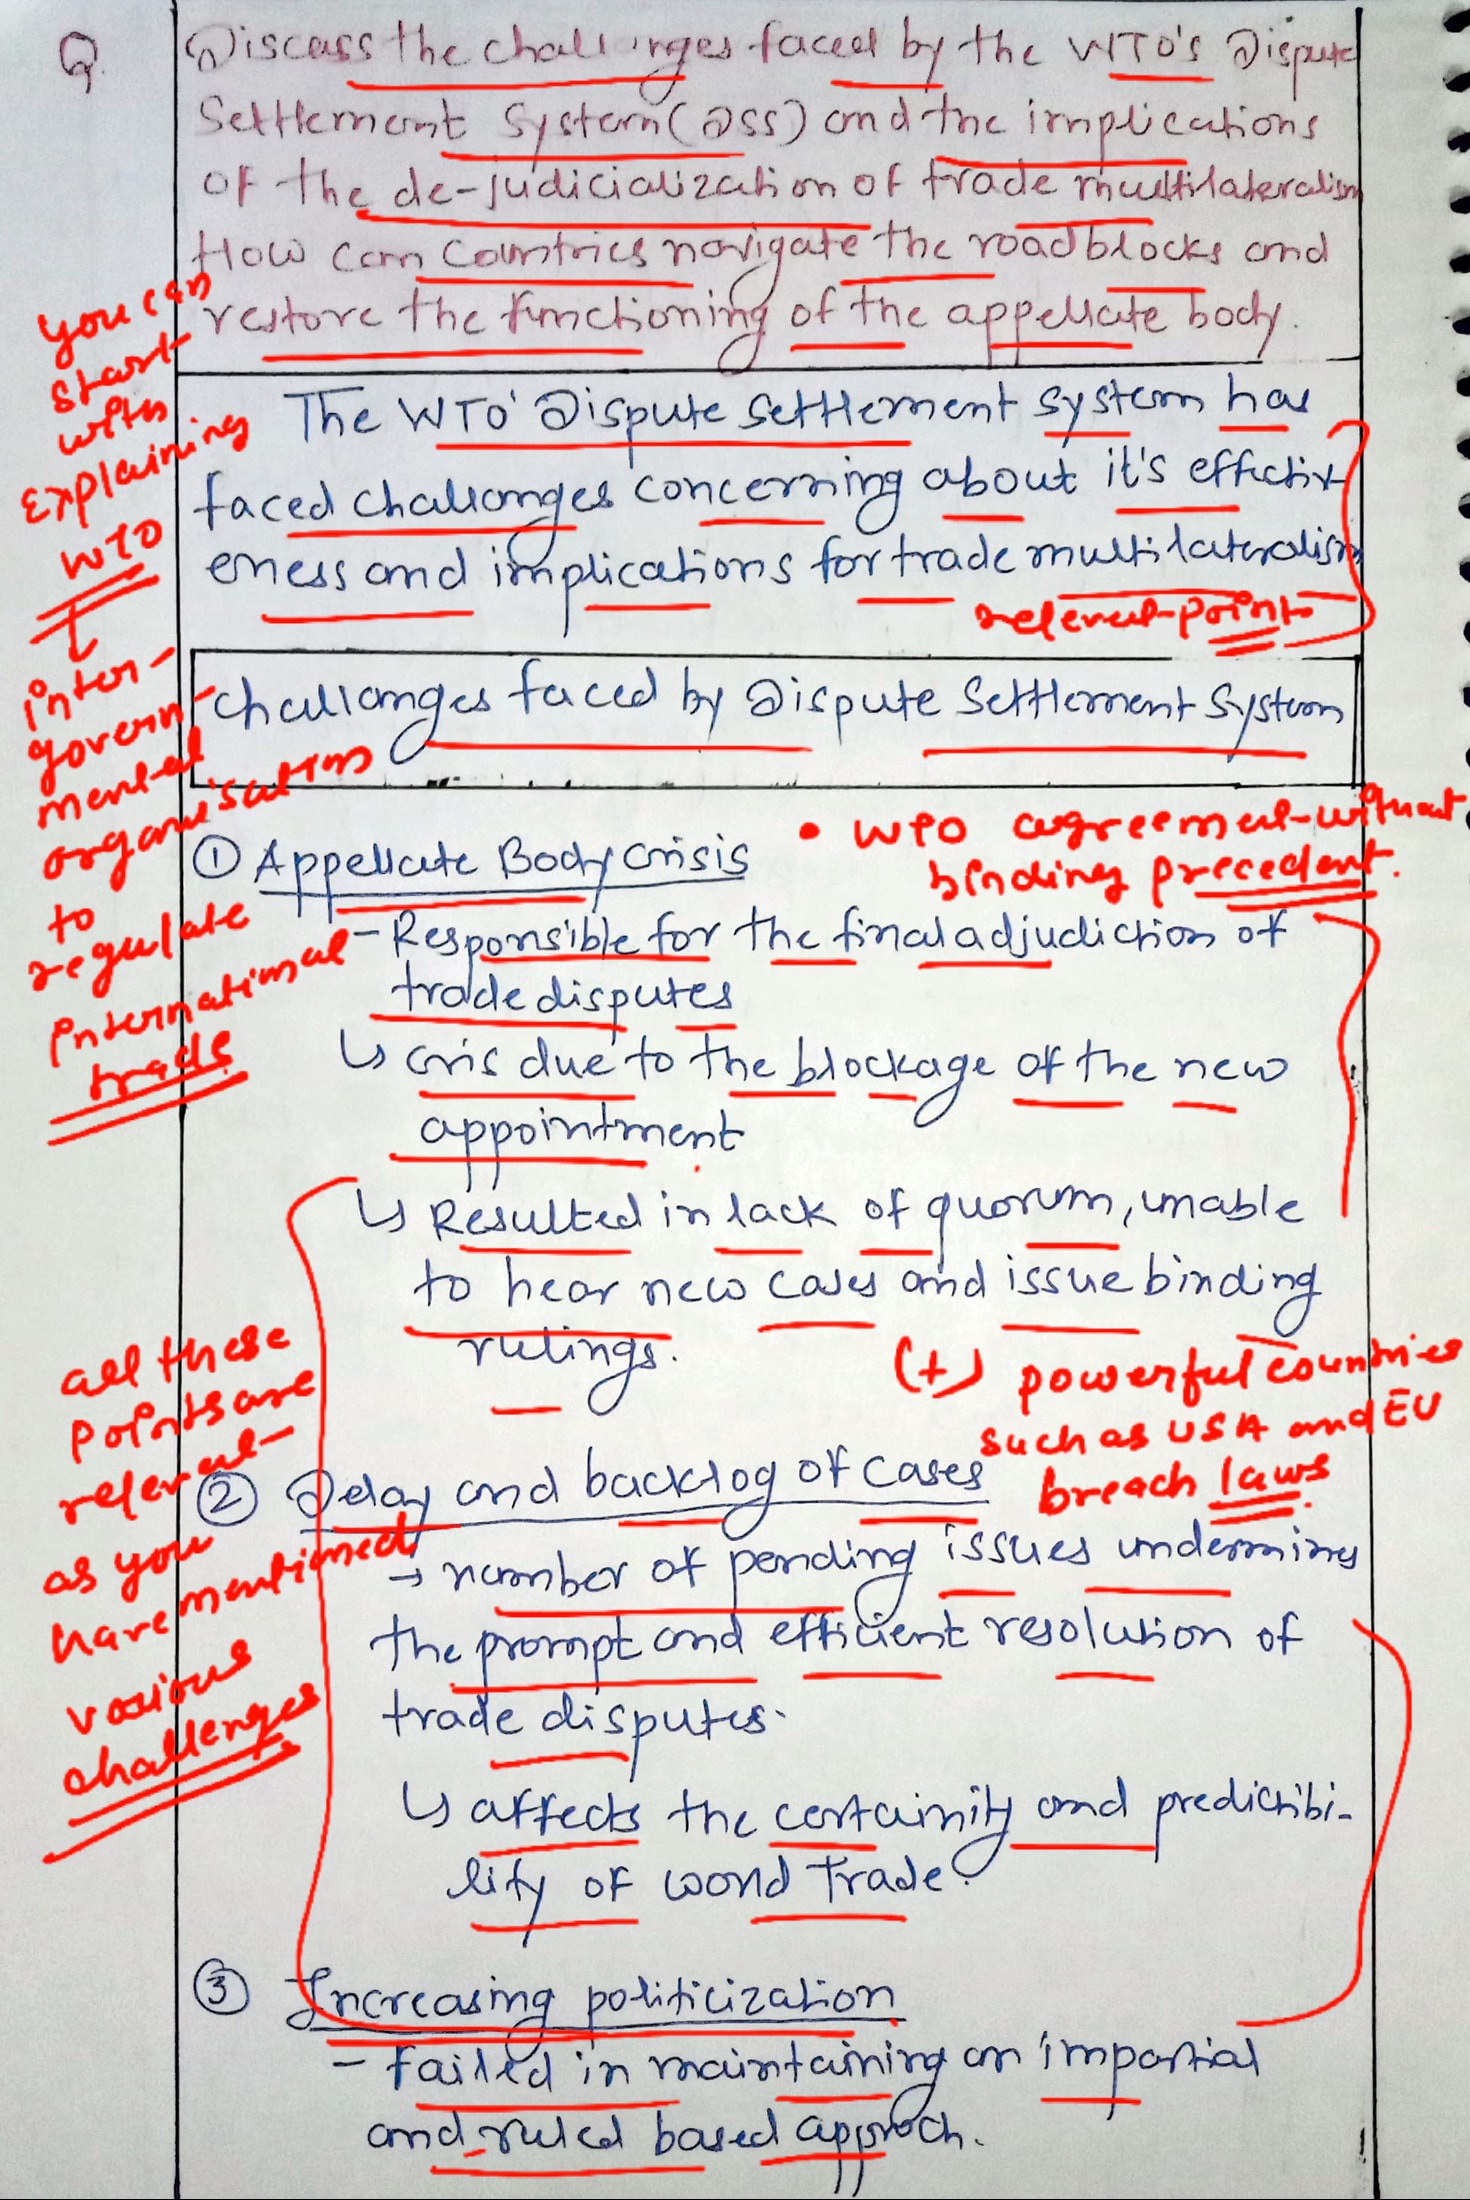 Q. Discuss the challenges faced by the WTO's Dispute
Settlement System (DSS) and the implications
of the de-judicialization of trade multilateralism
How can countries navigate the roadblocks and
restore the functioning of the appellate body.
you can
start
with
Explaining
WTO
inter-
govern-
mental
organisation
to
regulate
international
trade
The WTO' Dispute settlement system has
faced challanges concerning about it's effectiv-
eness and implications for trade multilateralism
relevant points
Challanges faced by Dispute Settlement System
① Appellate Body crisis
• WTO agreement without
binding precedent.
- Responsible for the final adjudiction of
trade disputes
↳ cris due to the blockage of the new
appointment
↳ Resulted in lack of quorum, unable
to hear new cases and issue binding
rulings.
(+) powerful countries
such as USA and EU
breach laws.
all these
points are
relevant
as you
have mentioned
various
challenges
② Delay and backlog of cases
→ number of pending issues undermines
the prompt and efficient resolution of
trade disputes.
↳ affects the certainity and predictibi-
lity of world Trade.
③ Increasing politicization
- Failed in maintaining an impartial
and ruled based approch.